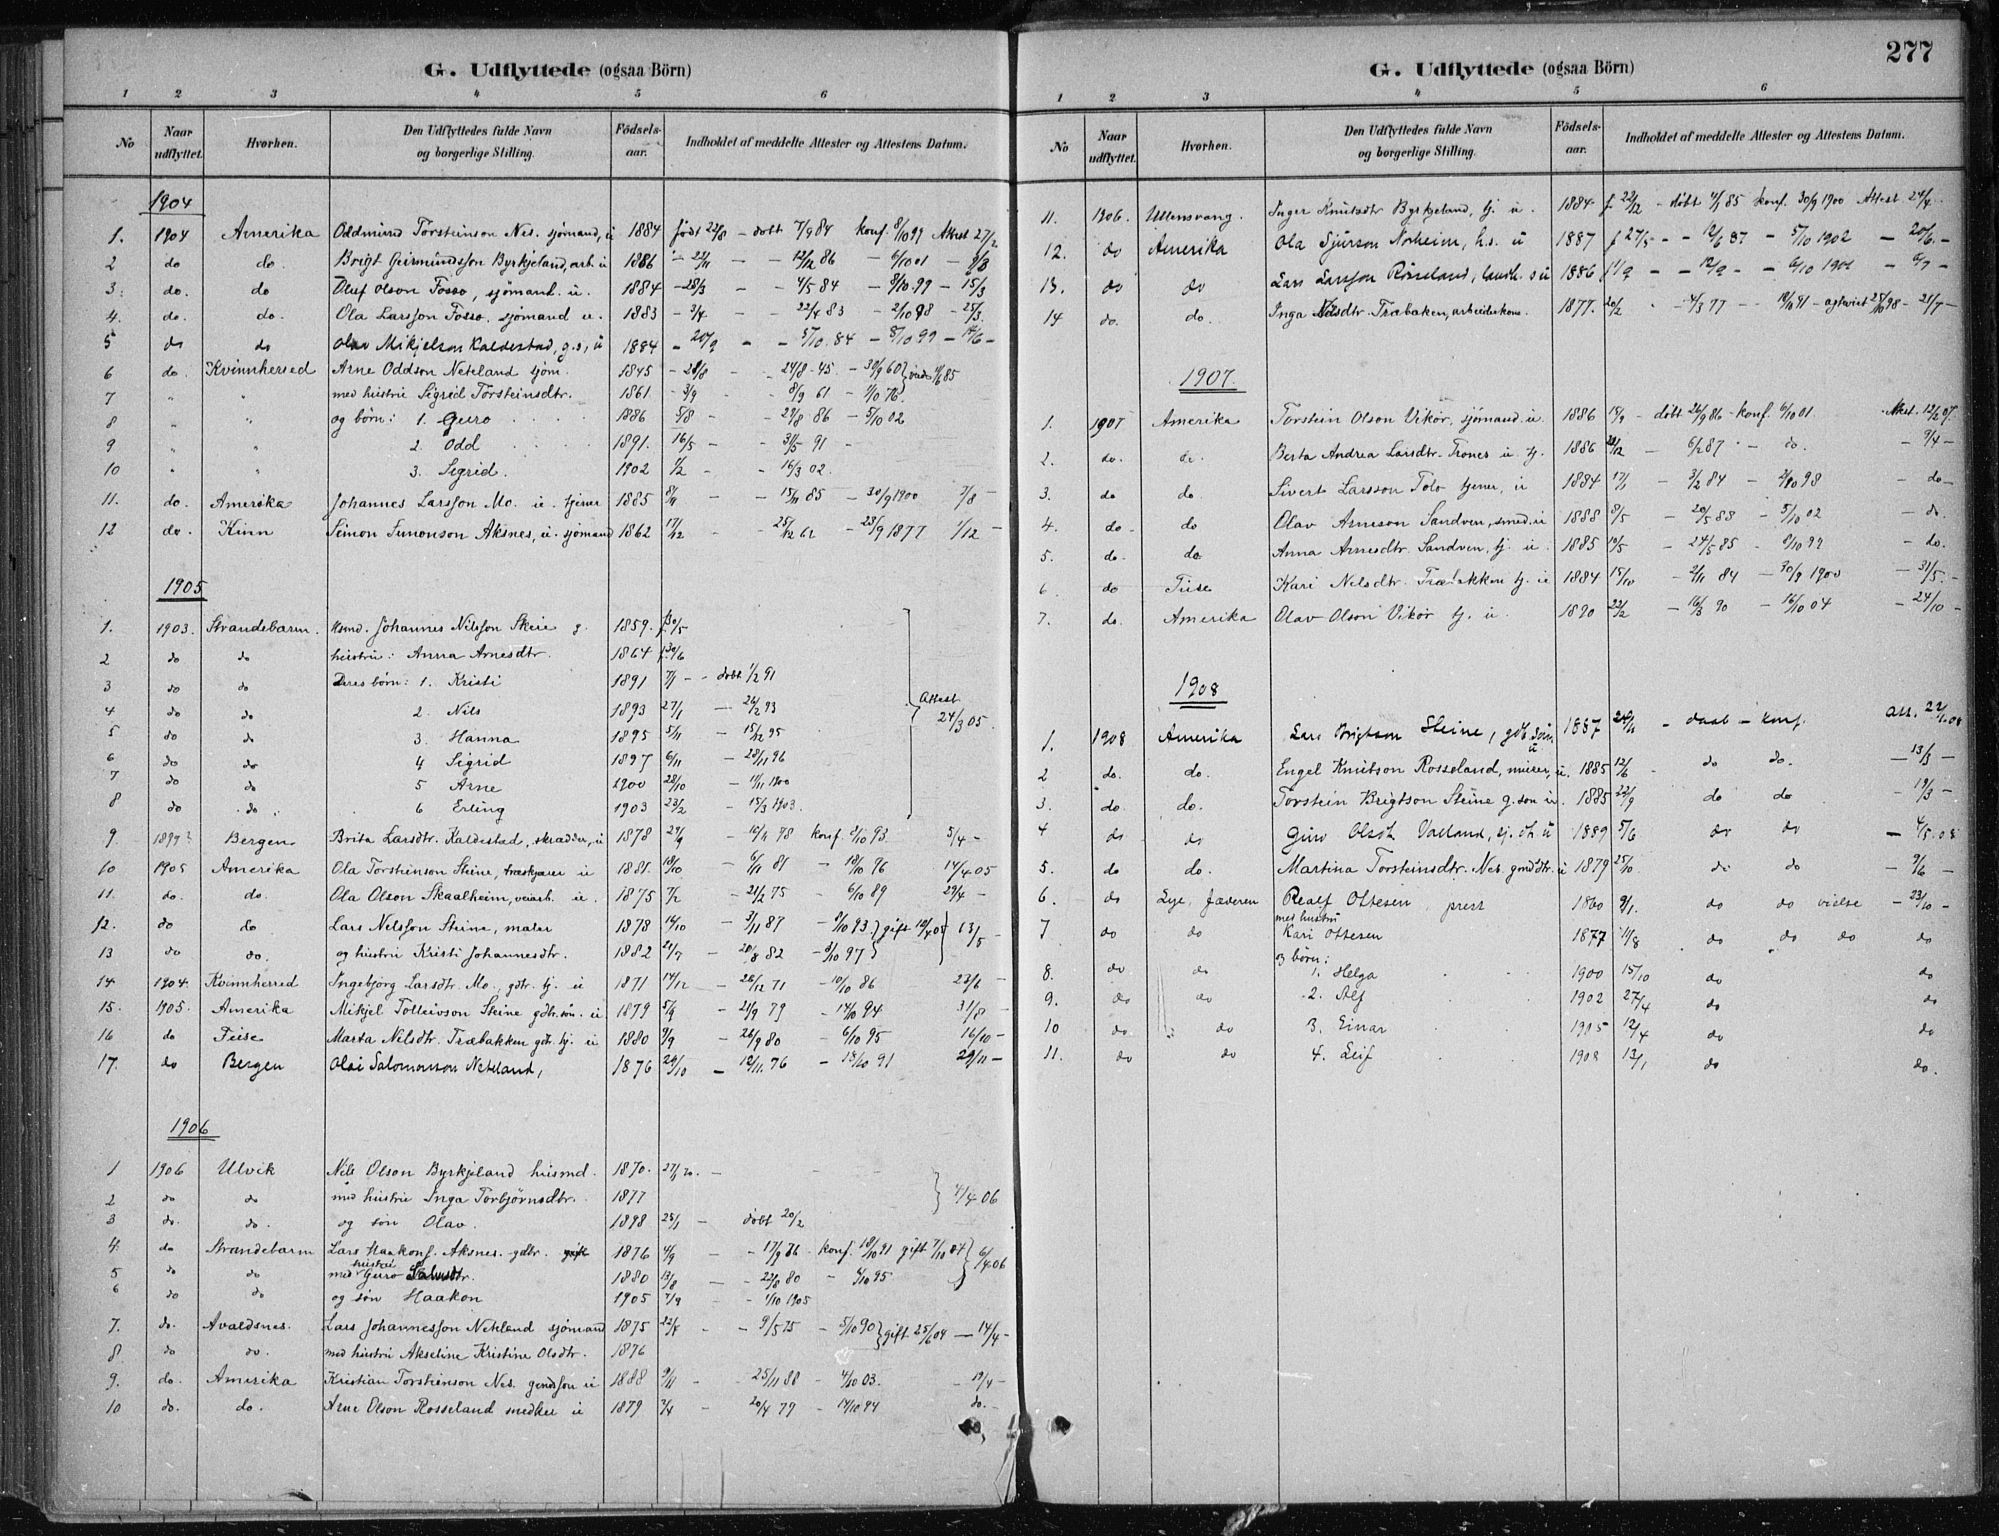 G. Udflyttede (ogsaa Börn)
1 2 3 4 5 6
No Naar udflyttet. Hvorhen. Den Udflyttedes fulde Navn og borgerlige Stilling. Födsels-aar. Indholdet af meddelte Attester og Attestens Datum.
1904
1. 1904 Amerika Oddmund Torsteinson Nes. sjømand, u 1884 født 22/8 - døbt 7/9 84 konf. 8/10 99 Attest 27/2
2 do do. Brigt Geirmundsson Byrkjeland, arb. u 1886 - - 12/12 86 - 6/10 01 -
3 do. do Oluf Olson Fosso, sjømand u. 1884 - 28/3 - - 4/5 84 - 8/10 99 - 15/3
4. do. do. Ola Larsson Fosso. sjømand u. 1883 - 3/4 - 22/4 83 - 2/10 98 - 25/3.
5 do do Olav Mikjelson Kaldestad, g.s, u 1884 - 20/9 - - 5/10. 84 - 8/10 99 - 14/6 -
6 do. Kvinnhersed Arne Oddson Neteland sjøm. 1845 - 28/8 - 24/8 - 45. - 30/9 60
7 " " med hustru Sigrid Torsteinsdtr. 1861 - 3/9 - 8/9 61 - 1/10 76
8 " " og børn: 1. Guro 1886 5/8 - - 29/8 86 - 5/10 02
9 " " 2. Odd 1891. 16/5 - - 31/5 91 -
10 " " 3. Sigrid. 1902 1/2 - - 16/3 02.
11. do. Amerika Johannes Larsson Mo. u. tjener 1885 8/11 - - 15/11 85 - 30/9 1900 7/8 -
12 do. Kinn Simon Simonson Aksnes, u. sjømand 1862 17/12 - - 25/12 62 - 28/9 1877 1/12 -
1905
1. 1903. Strandebarm. Husmd. Johannes Nilsson Skeie g. 1859. f. 30/5
2 do do hustru: Anna Arnesdtr. 1864 f. 30/6
3 do do Deres børn: 1. Kristi 1891 7/1 - - døbt 1/2 91
4 do do 2. Nils 1893 27/1 - 26/2 93 Attest 24/3 05.
5 do do 3. Hanna 1895 5/11 - 15/12 95
6 do do. 4 Sigrid 1897 6/11 - 28/11 96
7 do do 5 Arne 1900 28/10 - 11/11 1900
8 do do. 6 Erling 1903 23/2 - 15/3 1903.
9. 1899? Bergen Brita Larsdtr. Kaldestad, skrædder, u 1878 27/9 - 10/11 78 konf. 8/10 93 5/4 -
10 1905 Amerika Ola Torsteinson Steine, træskjærer u 1881. 18/10 - 6/11 81 - 18/10 96 14/4 05
11. do. do. Ola Olson Skaalheim, veiarb. u. 1875 7/2 - 21/2 75 - 6/10 89 29/4 -
12. do do. Lars Nelsson Steine, maler 1878 14/10 - 3/11 87 - 8/10 93. gift 12/4 05 13/5
13 do do. og hustru Kristi Johannesdtr. 1882 21/7 - 20/8 82 - 3/10 97
14 1904. Kvinnherred Ingebjørg Larsdtr. Mo., gdtr. tj. u 1871 14/12 - 26/12 71 - 10/10 86 23/6 -
15. 1905. Amerika Mikjel Tolleivson Steine gdbr.søn. u 1879 5/9 - 21/9 79 - 14/10 94 31/8 -
16 do Feise Marta Nilsdtr. Træbakken gdtr. tj. u 1880 9/9 - 26/9 80 - 6/10 95 16/10 -
17. do Bergen Olai Salomonson Neteland, 1876 29/10 - 12/11. 76 - 18/10 91 29/11 -
1906
1 1906 Ulvik Nils Olson Byrkjeland husmd. 1870. -
2 do do med hustru Inga Torbjørnsdtr. 1877 4/4 06
3 do. do. og søn Olav. 1898 25/1 - døbt 20/2
4. do Strandebarm Lars Haakons. Aksnes. gdbr. 1876 4/9 - 17/9 76 - konf. 18/10 91 gift 7/10 84 6/4 06
5 do do med hustru Guro 1880 13/8 - 22/8 80 - 6/10 95
6 do do og søn Haakon 1905 7/9 - 1/10 1905
7. do. Avaldsnes. Lars Johannesson Neteland sjømand 1875 22/4 - - 9/5 75 - 5/10 90 gift 25/6 04 - 14/4 -
8 do do. med hustru Akseline Kristine Olsdtr. 1876
9. do. Amerika Kristian Torsteinson Nes. gmdsson u 1888 9/11 - 25/11 88 - 4/10 03. - 19/4 -
10 do. do. Arne Olson Rosseland snedker u 1879 3/4 - 20/4 79 - 14/10 94 do. -
277
G. Udflyttede (ogsaa Börn)
1 2 3 4 5 6
No Naar udflyttet. Hvorhen. Den Udflyttedes fulde Navn og borgerlige Stilling. Födsels-aar. Indholdet af meddelte Attester og Attestens Datum.
11. 1906. Ullensvang. Inger Knutsdtr Byrkjeland, tj. u. 1884. f. 22/12 - døbt 4/1 85 konf. 30/9 1900 Attest 24/4.
12. do Amerika Ola Sjurson Norheim, h.s. u 1887 f 27/5 - - 12/6 87 - 5/10 1902 - 20/6. -
13. do do Lars Larsson Rosseland, landh. s u 1886 f - - 12/9 - - 6/10 1901 - 6/7 -
14 do. do. Inga Nilsdtr. Træbaken, arbeiderkone. 1877. 20/2 - 4/3 77 - - 18/10 91 - 21/7 -
1907.
1. 1907 Amerika Torstein Olson Vikør, sjømand. u. 1886 15/9 - døbt 26/9 86 - konf. 6/10 01 Attest. 12/2 07.
2. do. do. Berta Andrea Larsdtr. Trones u. tj. 1886 - 6/2 87 - do. - 9/4 -
3. do do. Sivert Larsson Tolo tjener, u 1884 17/1 - 3/2 84 - 2/10 98 - do -
4. do. do Olav Arneson Sandven, smed. u 1888 8/5 - 20/5 88 - 5/10 02 - do.
5. do. do. Anna Arnesdtr. Sandven, tj. u. 1885 10/5 - 24/5 85 - 8/10 99 - do.
6 do. Kari Nelsdtr. Træbakken tj. u 1884 15/10 - 2/11 84 - 30/9 1900 - 31/5. -
7. do. Amerika Olav Olson Vikør tj. u. 1890 22/2 - 16/3 90 - 16/10 04 - 24/10 -
1908
1. 1908 Amerika Lars Brigtson Steine, gdb. søn u 1887 - daab - konf. att. 22/1 08
2 do. do. Engel Knutson Rosseland, murer, u. 1885 12/6 - do do. - 13/3 -
3. do. do. Torstein Brigtson Steine g.son u 1885 22/9 do do - 19/3 -
4 do do Guro Olsdt. Valland, 1889 5/6 do do - 4/5 08
5. do do. Martina Torsteinsdtr. Nes. gmdsdtr. u 1879 25/10 do do - 9/6 -
6. do Lye, Jæderen Realf Ottesen, prest 1860 9/1. do do vielse - 23/10 -
7 do do med hustru Kari Ottesen 1877 11/8 do do do do
8. do do og børn: 1. Helga 1900 15/10 do do
9. do do 2. Alf 1902 27/4 do do
10 do do 3. Einar 1905 12/4 do do
11. do do 4. Leif 1908 13/1 do do.